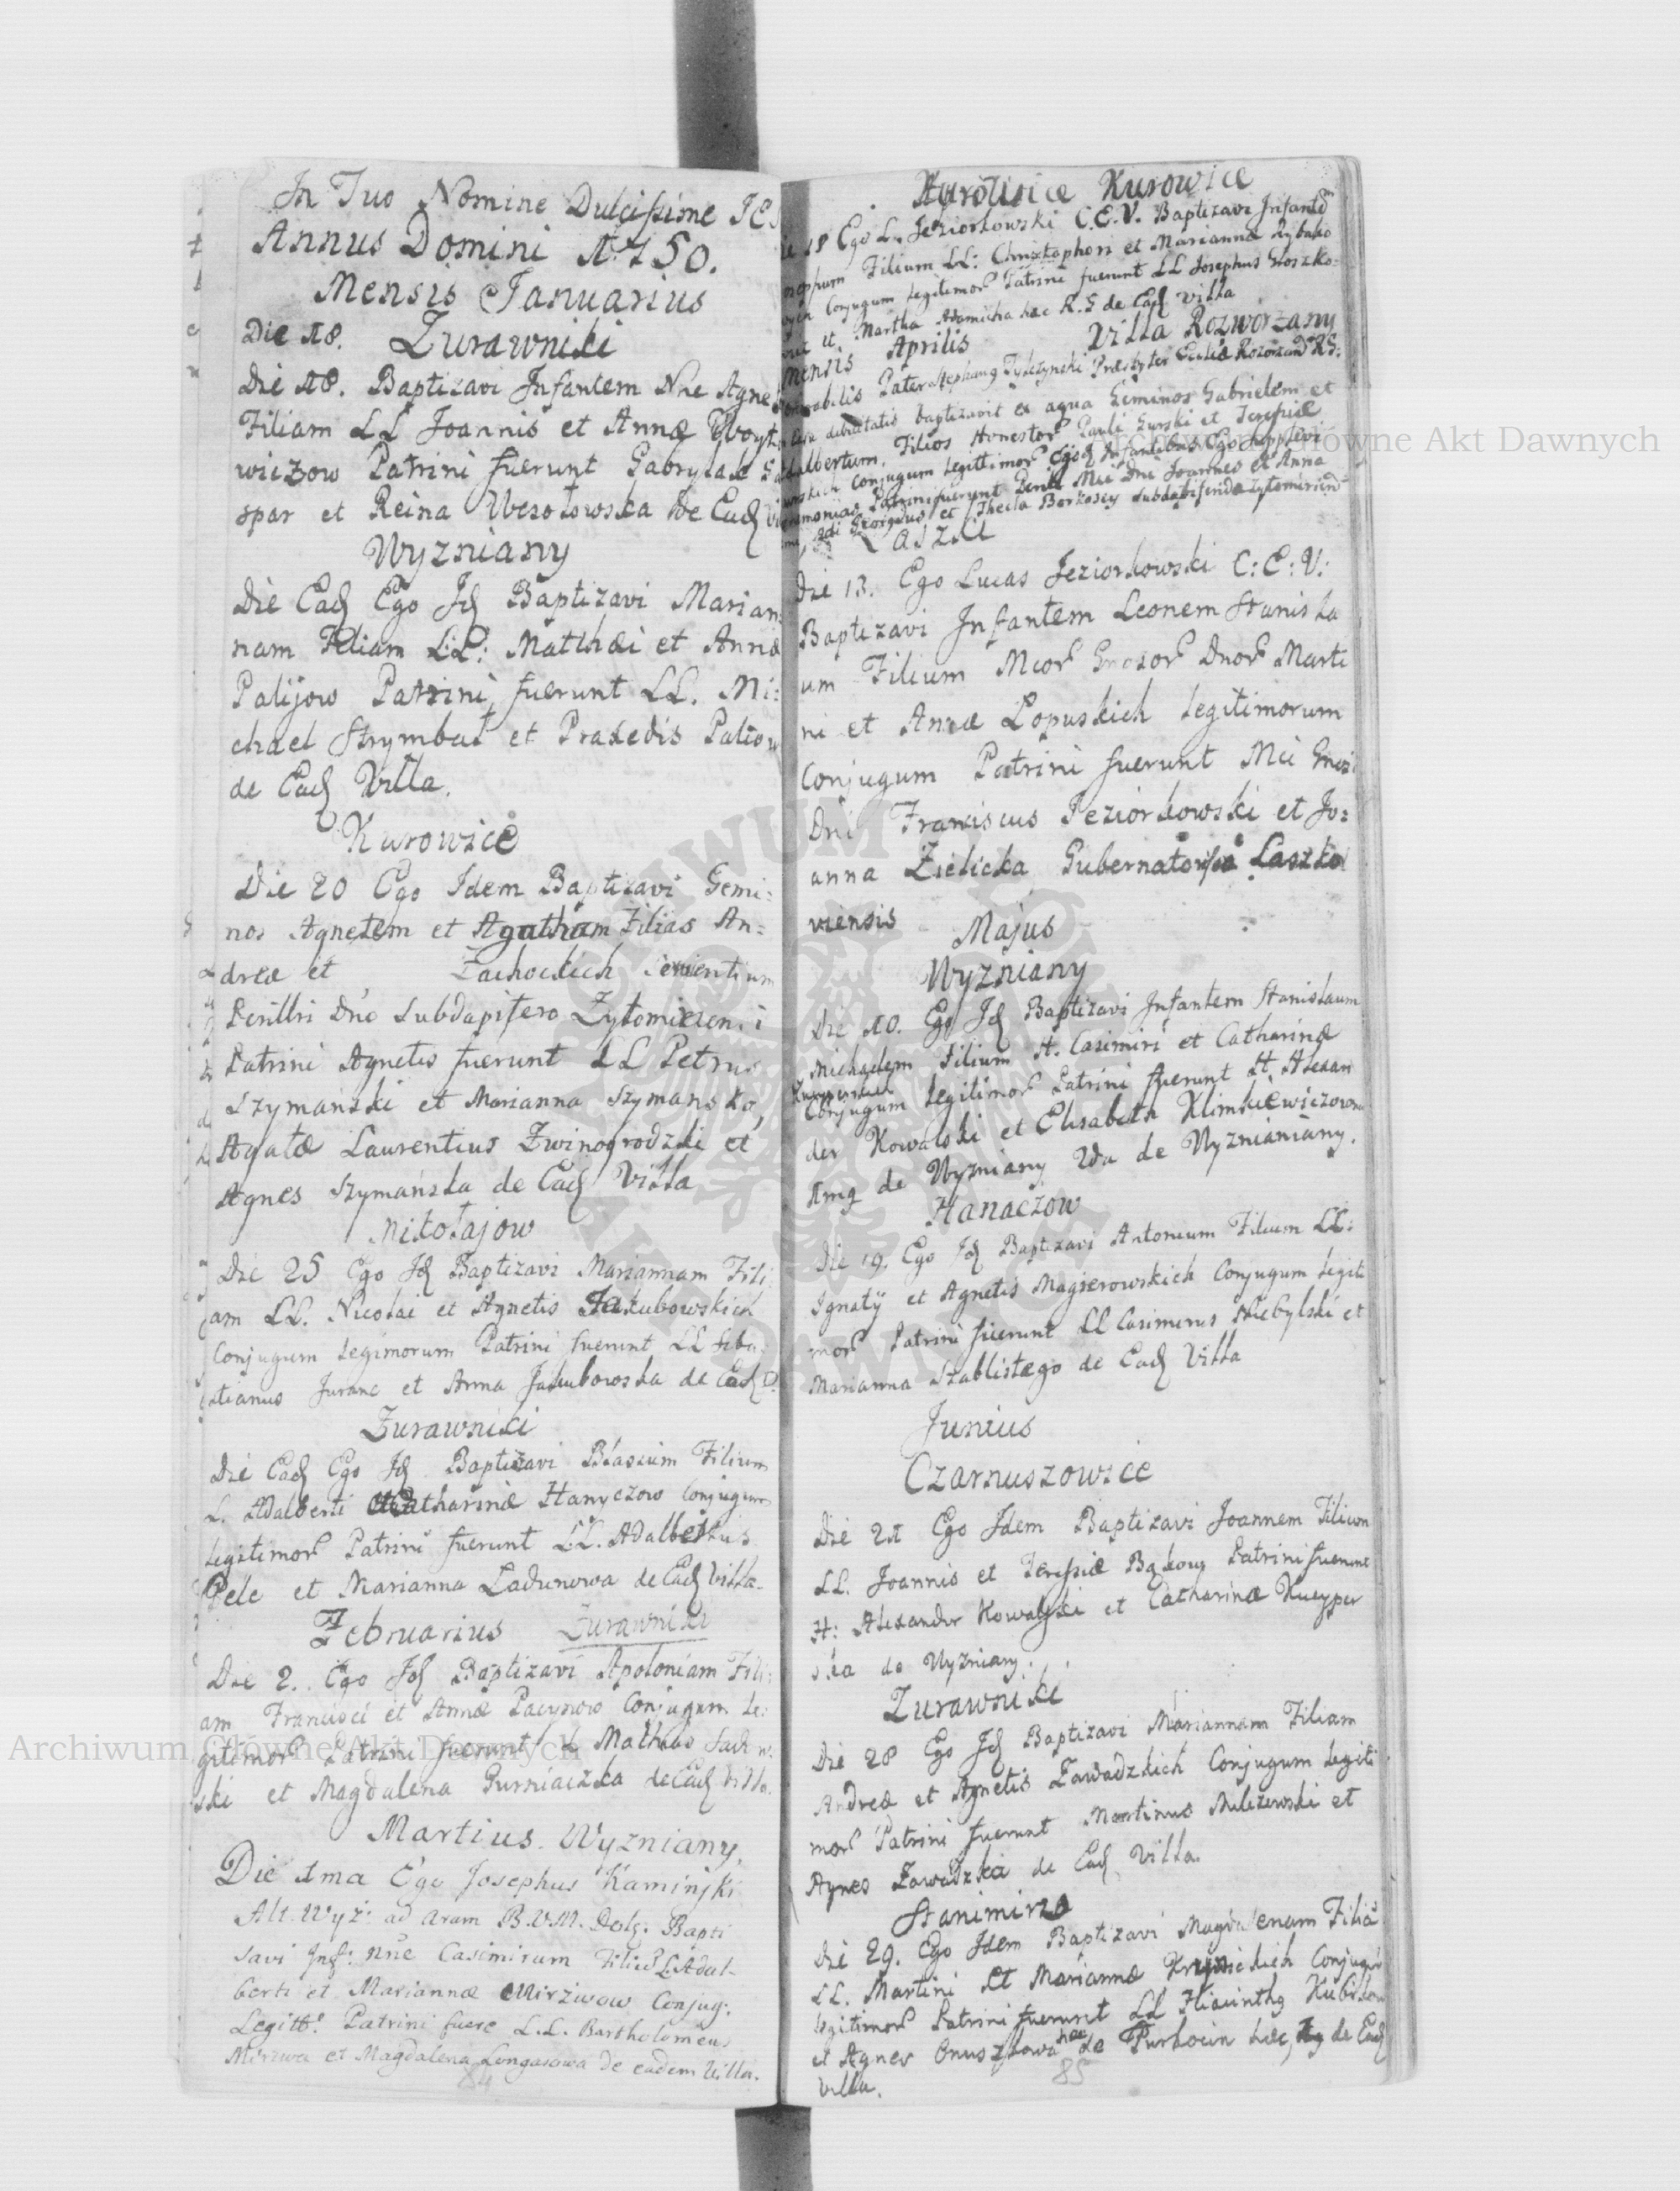 In Tuo Nomine Dulcissime IES
Annus Domini 1750.
Mensis Januarius
Die 18. Zurawniki
Die 18. Baptizavi Infantem Nne Agne
Filiam LL Joannis et Annæ
wiczow Patrini fuerunt Gabryel
spar et Reina Wesołowska de Ead
Wyzniany
Die Ead Ego Id Baptizavi Marian
nam Filiam LL: Matthæi et Annæ
Palijow Patrini fuerunt LL. Mi:
chael Strymbał et Praxedis Paliow
de Ead Villa.
Kurowice
Die 20 Ego Idem Baptizavi Gemi:
nos Agnetem et Agatham Filias An:
dreæ et Zachockich Servientium
Perilltri Dno Subdapifero Zytomiriensi
Patrini Agnetis fuerunt LL Petrus
Szymański et Marianna Szymanska,
Agatæ Laurentius Zwinogrodzki et
Agnes Szymańska de Ead Villa
Mikołajow
Die 25 Ego Id Baptizavi Mariannam Fili
am LL. Nicolai et Agnetis Jakubowskich
Conjugum Legimorum Patrini fuerunt LL Seba:
stianus Juranc et Anna Jakubowska de Ead V.
Zurawniki
Die Ead Ego Id Baptizavi Blasium Filium
L. Adalberti Catharinæ Hanyczow Conjugum
Legitimor Patrini fuerunt LL. Adalbertus
Pele et Marianna Ladunowa de Ead Villa.
Februarius Zurawniki
Die 2. Ego Id Baptizavi Apoloniam Fili:
am Francisci et Annæ Pacynow Conjugum Le:
gitimor Patrini fuerunt LL Mathias
ski et Magdalena Gurniaczka de Ead Villa.
Martius. Wyzniany.
Die 1ma Ego Josephus Kaminski
Alt. Wyż: ad Aram B.V.M. Dolę: Bapti
savi Inf: nne Casimirum Filiu L. Adal-
berti et Mariannæ Mirziwow Conjug:
Legitt: Patrini fuere L.L. Bartholomeus
Mirziwa et Magdalena Longasowa de eadem Villa.
84
Kurowice Kurowice
18 Ego L. Jeziorkowski C.E.V. Baptizavi Infante
Filium LL: Christophori et Marianna Rybako
Conjugum Legitimor Patrini fuerunt LL Josephus Groszko:
et Martha Adamicha hæc R. G de Ead villa
Mensis Aprilis Villa Rozworzany
Pater Stephanus Presbyter R.G:
baptizavit ex aqua Geminos Gabrielem et
Adalbertum, Filios Honestor Pauli Gurski et Teressiæ
Conjugum Legittimor Infantibus Ego supplevi
Patrini fuerunt Perill Mci Dni Joannes et Anna
et Thecla Borkoscy Subdapiferida Zytomiriens
Laszki
Die 13. Ego Lucas Jeziorkowski C: E: V:
Baptizavi Infantem Leonem Stanisla
um Filium Mcor Gnosor Dnor Marti
ni et Annæ Łopuskich Legitimorum
Conjugum Patrini fuerunt Mci Gnosi
Dni Franciscus Jeziorkowski et Jo:
anna Zielicka Gubernatorissa Laszko
viensis
Majus
Wyzniany
Die 10. Ego Id Baptizavi Infantem Stanislaum
Michaelem Filium H. Casimiri et Catharinæ
Conjugum Legitimor Patrini fuerunt H. Alexan
der Kowalski et Elisabeth Klimkiewiczowa
1mg de Wyzniany 2da de Wyznianiany.
Hanaczow
Die 19. Ego Id Baptizavi Antonium Filium LL:
Ignatÿ et Agnetis Magierowskich Conjugum Legiti
mor Patrini fuerunt LL Casimirus Skebylski et
Marianna Stablistego de Ead Villa
Junius
Czarnuszowice
Die 21 Ego Idem Baptizavi Joannem Filium
LL. Joannis et Teressiæ Bąkow Patrini fuerunt
H: Alexander Kowalski et Catharinæ Kucyper
ska de Wyzniany.
Zurawniki
Die 28 Ego Id Baptizavi Mariannam Filiam
Andreæ et Agnetis Zawadzkich Conjugum Legiti
mor Patrini fuerunt Martinus Milczewski et
Agnes Zawadzka de Ead Villa.
Stanimirz
Die 29. Ego Idem Baptizavi Magdalenam Filiā
LL. Martini et Mariannæ Krynickich Conjugū
Legitimor Patrini fuerunt LL Hiacinthg
et Agnes Onuszkowa hæc de Purkocin hæc, de Ead
Villa.
85
Archiwum Główne Akt Dawnych
Archiwum Główne Akt Dawnych
ARCHIWUM GŁÓWNE AKT DAWNYCH